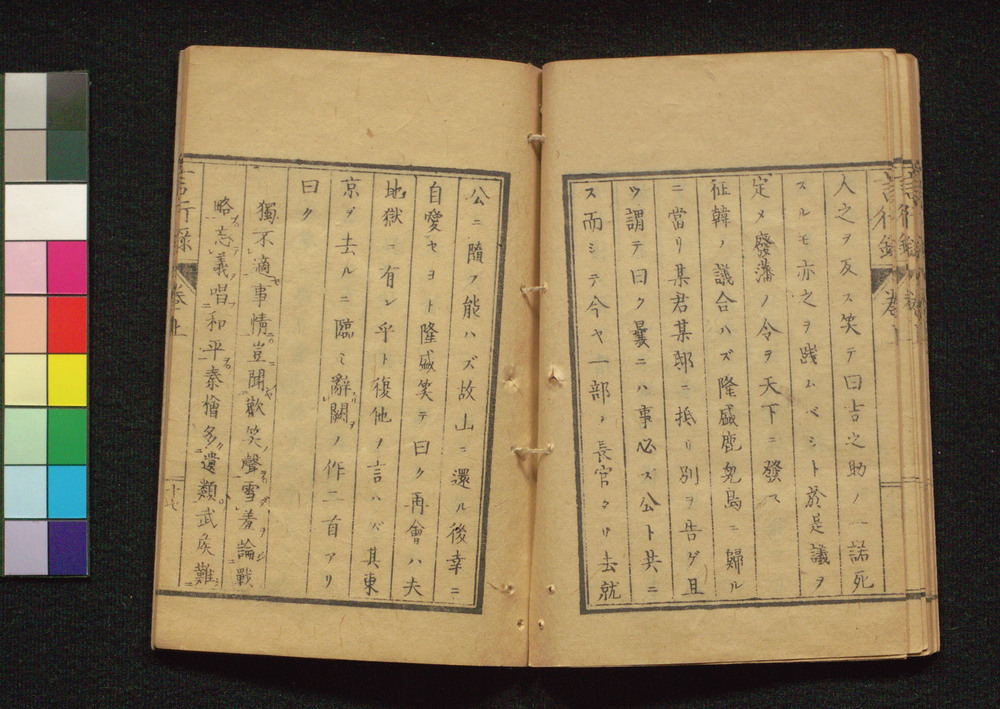 人之ヲ反ス笑テ曰吉之助ノ一諾死
スルモ亦之ヲ踐ムベシト於是議ヲ
定メ廢藩ノ令ヲ天下ニ發ス
征韓ノ議合ハズ隆盛鹿兒島ニ歸ル
ニ當リ某君某邸ニ抵リ別ヲ告グ且
ツ謂テ曰ク曩ニハ事必ズ公ト共ニ
ス而シテ今ヤ一部ノ長官タリ去就
公ニ隨フ能ハズ故山ニ還ル後幸ニ
自愛セヨト隆盛笑テ曰ク再會ハ夫
地獄ニ有ン乎ト復他ノ言ハバ其東
京ヲ去ルニ臨ミ辭闕ノ作二首アリ
曰ク
獨不適事情豈聞歡笑聲雪羞論戰
略忘義唱和平秦檜多遺類武矦難
言行錄 卷上 十七